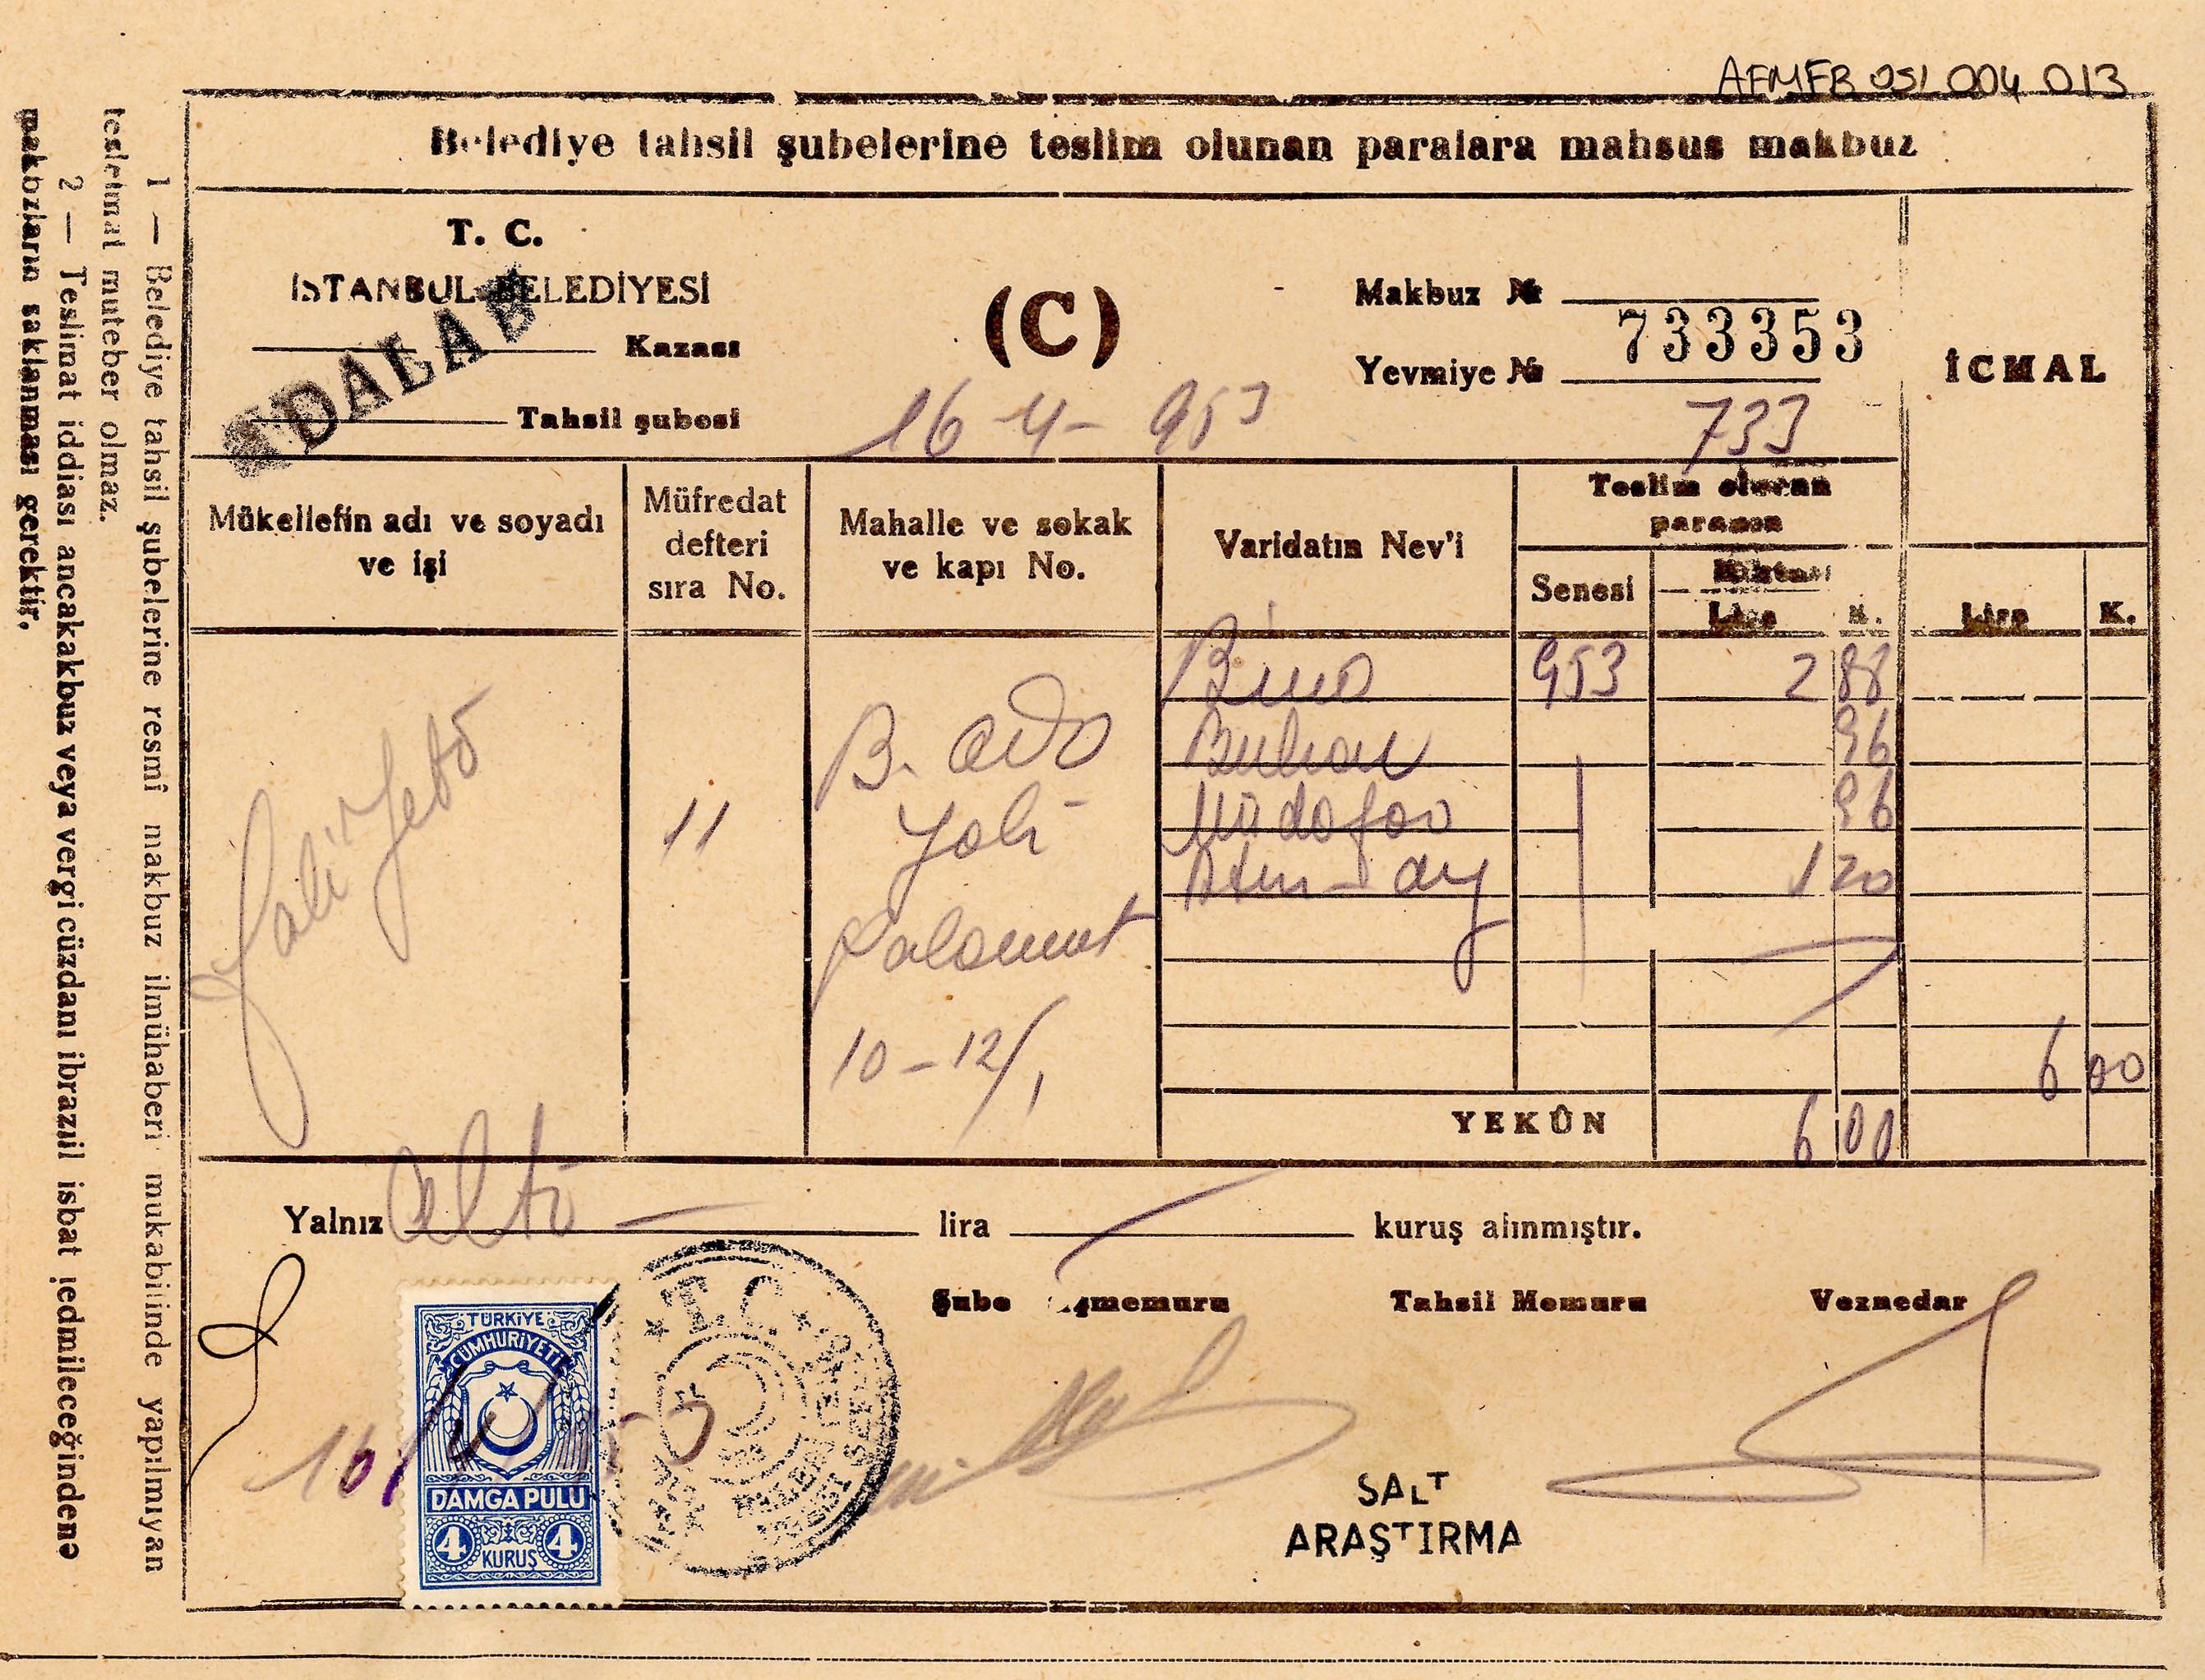 AFMFB OSL 004 013
Belediye tahsil şubelerine teslim olunan paralara mahsus makbuz
T. C.
İSTANBUL BELEDİYESİ
ADALAR
Kazası
Tahsil şubesi
(C)
16-4-953
Makbuz №
733353
Yevmiye №
733
İCMAL
Mükellefin adı ve soyadı
ve işi
Müfredat
defteri
sıra No.
Mahalle ve sokak
ve kapı No.
Varidatın Nev'i
Teslim olunan
paranın
Senesi
Miktarı
Lira K.
Lira K.
Bina 953 2 88
Buhran 96
Müdafaa 96
1 20
11
B. ada
Yalı
Palamut
10-12/1
6 00
YEKÛN 6 00
Yalnız altı lira kuruş alınmıştır.
Şube Başmemuru Tahsil Memuru Veznedar
TÜRKİYE
CUMHURİYETİ
DAMGA PULU
4 KURUŞ 4
T. C.
SALT
ARAŞTIRMA
1 — Belediye tahsil şubelerine resmî makbuz ilmühaberi mukabilinde yapılmıyan
teslimat muteber olmaz.
2 — Teslimat iddiası ancakakbuz veya vergi cüzdanı ibrazıil isbat iedmileceğindenə
makbzların saklanması gerektir.